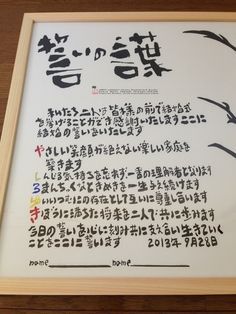 誓いの言葉
わたしたち二人は皆様の前で結婚式
を挙げることができ感謝いたしますここに
結婚の誓いをいたします
やさしい笑顔が絶えない楽しい家庭を
築きます
しんじる気持ちを忘れず一番の理解者となります
ろまんちっくなときめきを一生与え続けます
ゆいいつむにの存在として互いに尊重し合います
きぼうに満ちた将来を二人で共に歩みます
今日の誓いを心に刻み共に支え合い生きていく
ことをここに誓います
2013年9月28日
name
name